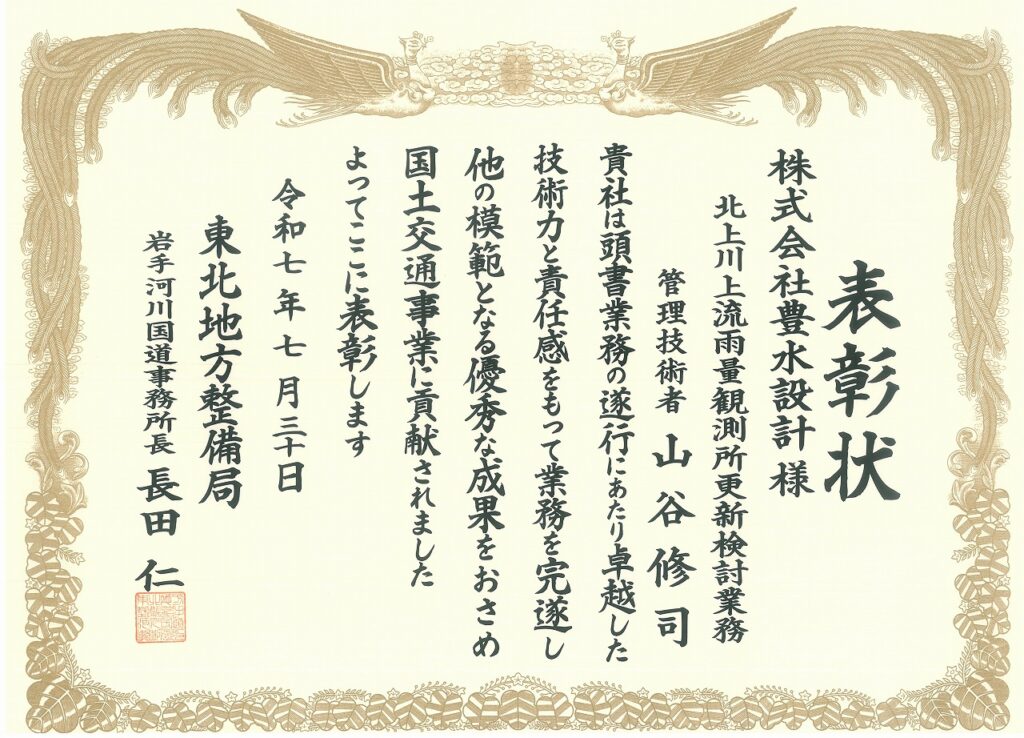 表彰状
株式会社豊水設計 様
北上川上流雨量観測所更新検討業務
管理技術者 山谷修司
貴社は頭書業務の遂行にあたり卓越した
技術力と責任感をもって業務を完遂し
他の模範となる優秀な成果をおさめ
国土交通事業に貢献されました
よってここに表彰します
令和七年七月三十日
東北地方整備局
岩手河川国道事務所長 長田 仁